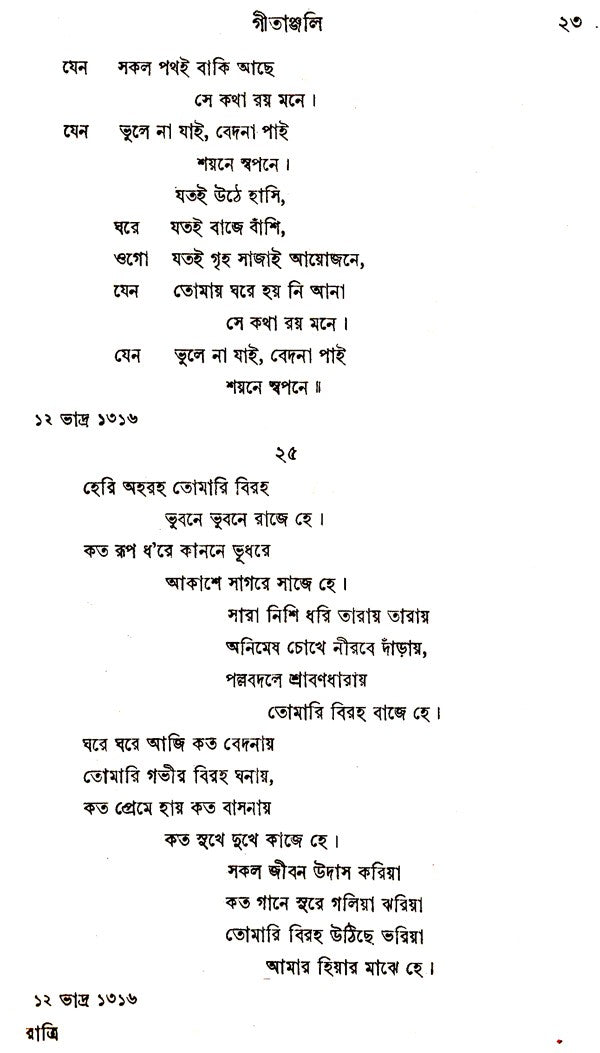 গীতাঞ্জলি ২৩
যেন সকল পথই বাকি আছে
সে কথা রয় মনে।
যেন ভুলে না যাই, বেদনা পাই
শয়নে স্বপনে।
যতই উঠে হাসি,
ঘরে যতই বাজে বাঁশি,
ওগো যতই গৃহ সাজাই আয়োজনে,
যেন তোমায় ঘরে হয় নি আনা
সে কথা রয় মনে।
যেন ভুলে না যাই, বেদনা পাই
শয়নে স্বপনে॥
১২ ভাদ্র ১৩১৬
২৫
হেরি অহরহ তোমারি বিরহ
ভুবনে ভুবনে রাজে হে।
কত রূপ ধ'রে কাননে ভূধরে
আকাশে সাগরে সাজে হে।
সারা নিশি ধরি তারায় তারায়
অনিমেষ চোখে নীরবে দাঁড়ায়,
পল্লবদলে শ্রাবণধারায়
তোমারি বিরহ বাজে হে।
ঘরে ঘরে আজি কত বেদনায়
তোমারি গভীর বিরহ ঘনায়,
কত প্রেমে হায় কত বাসনায়
কত সুখে দুখে কাজে হে।
সকল জীবন উদাস করিয়া
কত গানে সুরে গলিয়া ঝরিয়া
তোমারি বিরহ উঠিছে ভরিয়া
আমার হিয়ার মাঝে হে।
১২ ভাদ্র ১৩১৬
রাত্রি